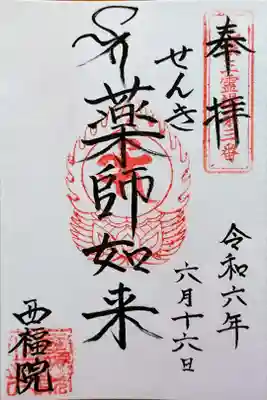 奉拝
せんき
薬師如来
令和六年
六月十六日
西福院